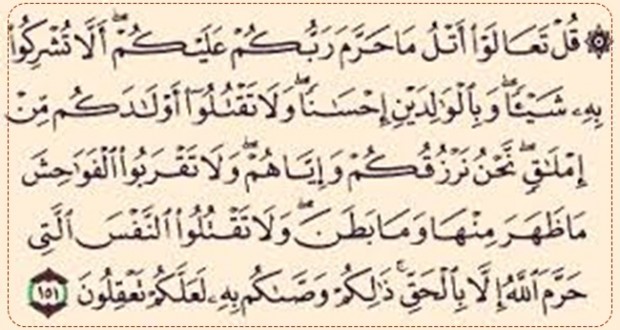 ۞ قُلْ تَعَالَوْا۟ أَتْلُ مَا حَرَّمَ رَبُّكُمْ عَلَيْكُمْ ۖ أَلَّا تُشْرِكُوا۟
بِهِۦ شَيْـًٔا ۖ وَبِٱلْوَٰلِدَيْنِ إِحْسَـٰنًا ۖ وَلَا تَقْتُلُوٓا۟ أَوْلَـٰدَكُم مِّنْ
إِمْلَـٰقٍ ۖ نَّحْنُ نَرْزُقُكُمْ وَإِيَّاهُمْ ۖ وَلَا تَقْرَبُوا۟ ٱلْفَوَٰحِشَ
مَا ظَهَرَ مِنْهَا وَمَا بَطَنَ ۖ وَلَا تَقْتُلُوا۟ ٱلنَّفْسَ ٱلَّتِى
حَرَّمَ ٱللَّهُ إِلَّا بِٱلْحَقِّ ۚ ذَٰلِكُمْ وَصَّىٰكُم بِهِۦ لَعَلَّكُمْ تَعْقِلُونَ ١٥١